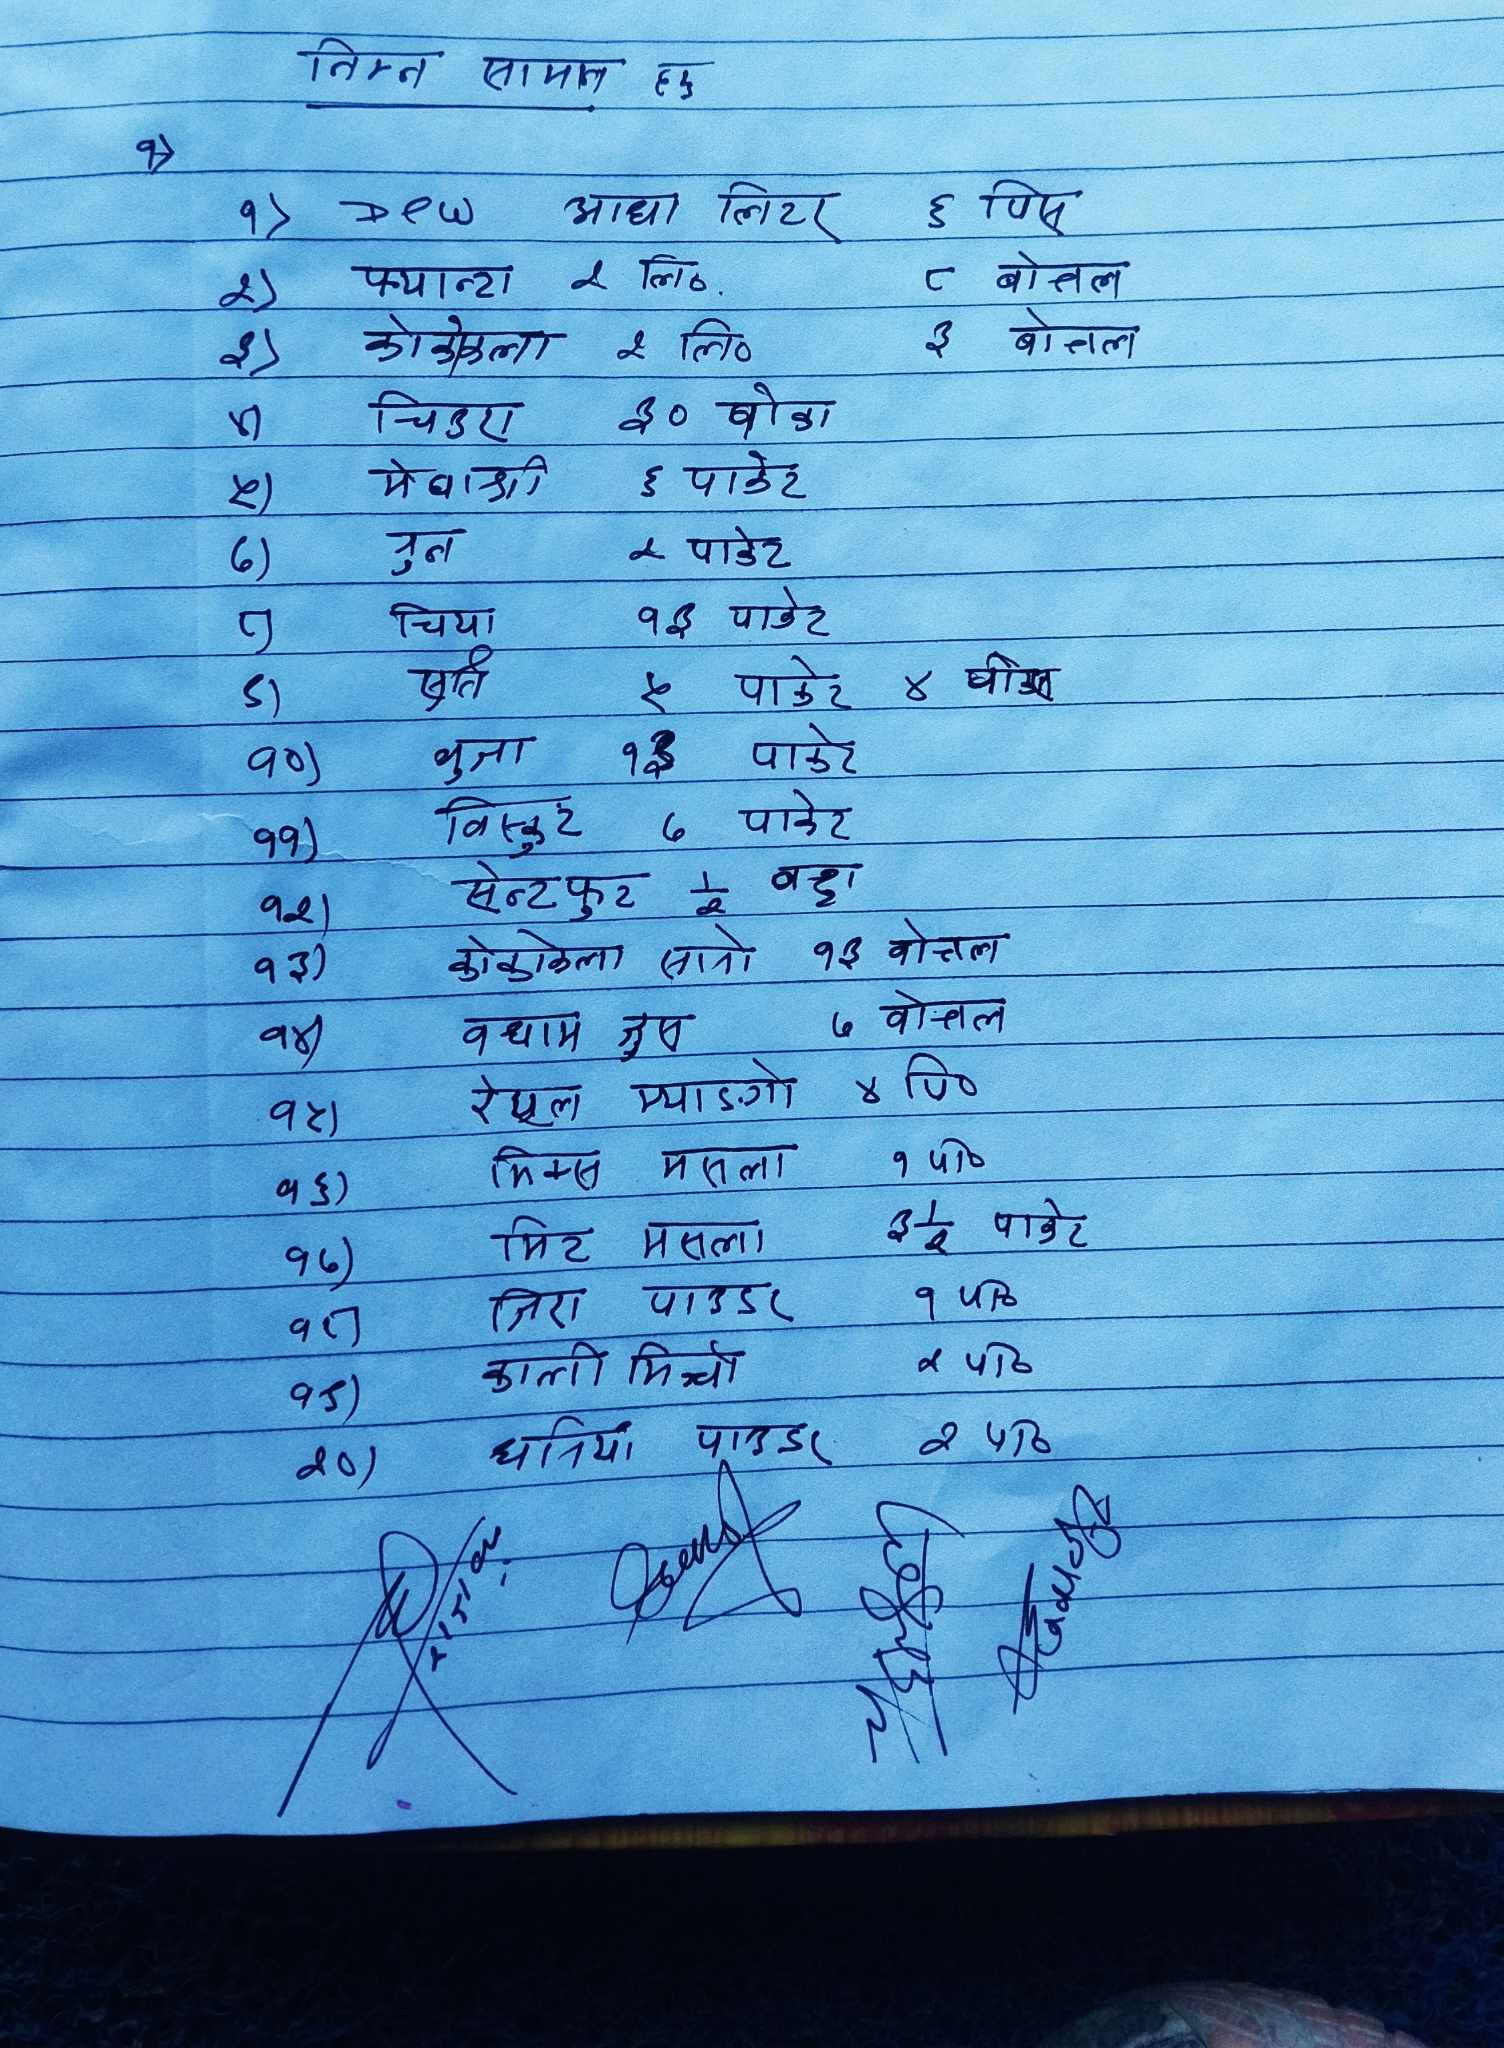 निम्न सामान हरु
१)
१) Dew आधा लिटर ६ पिस
२) फ्यान्टा २ लि०. ८ बोत्तल
३) कोकोकला २ लि० ३ बोत्तल
४) चिउरा ३० बोका
५) ६ पाकेट
७) नुन २ पाकेट
८) चिया १३ पाकेट
९) सुर्ति ५ पाकेट ४ पोका
१०) भुजा १३ पाकेट
११) विस्कुट ७ पाकेट
१२) सेन्टफ्रुट १/२ बट्टा
१३) कोकाकेला सानो १३ बोत्तल
१४) वधाम जुस ७ बोत्तल
१५) रेयल म्याङगो ४ पि०
१६) मिक्स मसला १ पा०
१७) मिट मसला ३ १/२ पाकेट
१८) जिरा पाउडर १ पा०
१९) काली मिर्च २ पा०
२०) धनिया पाउडर २ पा०